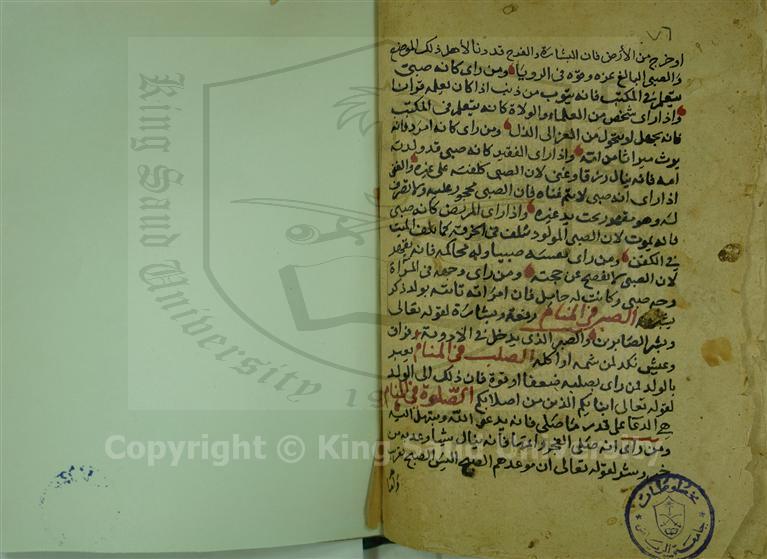 ٧٦
او خرج من الأرض فان البشارة والفرح قد دنا لأهل ذلك الموضع
والصبي البالغ عزه وقوه في الرويا ومن راى كانه صبي
يتعلم في المكتب فانه يتوب من ذنب اذا كان يعلمه قران
واذا راى شخص من العلماء والولاة كانه يتعلم في المكتب
فانه يجهل او يتحول من العز الى الذل ومن راى كانه امرد فانه
يرث ميراثا من امه واذا راى الفقير كانه صبي قد ولدته
امه فانه ينال رزقا وغنى لان الصبي كلفته على غيره والغني
اذا راى انه صبي لا يتم غناه فان الصبي محجور عليه ولا تصرف
له وهو مقهور تحت يد غيره واذا راى المريض كانه صبي
فانه يموت لان الصبي المولود يلف في الخرقه كما يلف الميت
في الكفن ومن راى نفسه صبيا وله محاكمه فانه يقهر
لان الصبي لا يفصح عن حجته ومن راى وجهه في المرأة
وجه صبي وكانت له حامل فان امراته تاتيه بولد ذكر
يشبهه الصبر في المنام رفعة وبشارة لقوله تعالى
وبشر الصابرين والصبر الذي يدخل في الادوية
وعيش نكد لمن شمه او اكله الصلب في المنام يعبر
بالولد فمن راى بصلبه ضعفا او قوة فان ذلك الى الولد
لقوله تعالى ابنايكم الذين من اصلابكم الصلوة في المنام
هي الدعا على قدر ما صلى فانه يدعي الله ويبتهل اليه
ومن راى انه صلى الفجر واتمها فانه ينال شيا وعد به من
خير وشر لقوله تعالى ان موعدهم الصبح اليس الصبح بقريب
King Saud University
Copyright © King Saud University
مخطوطات
جامعة الرياض